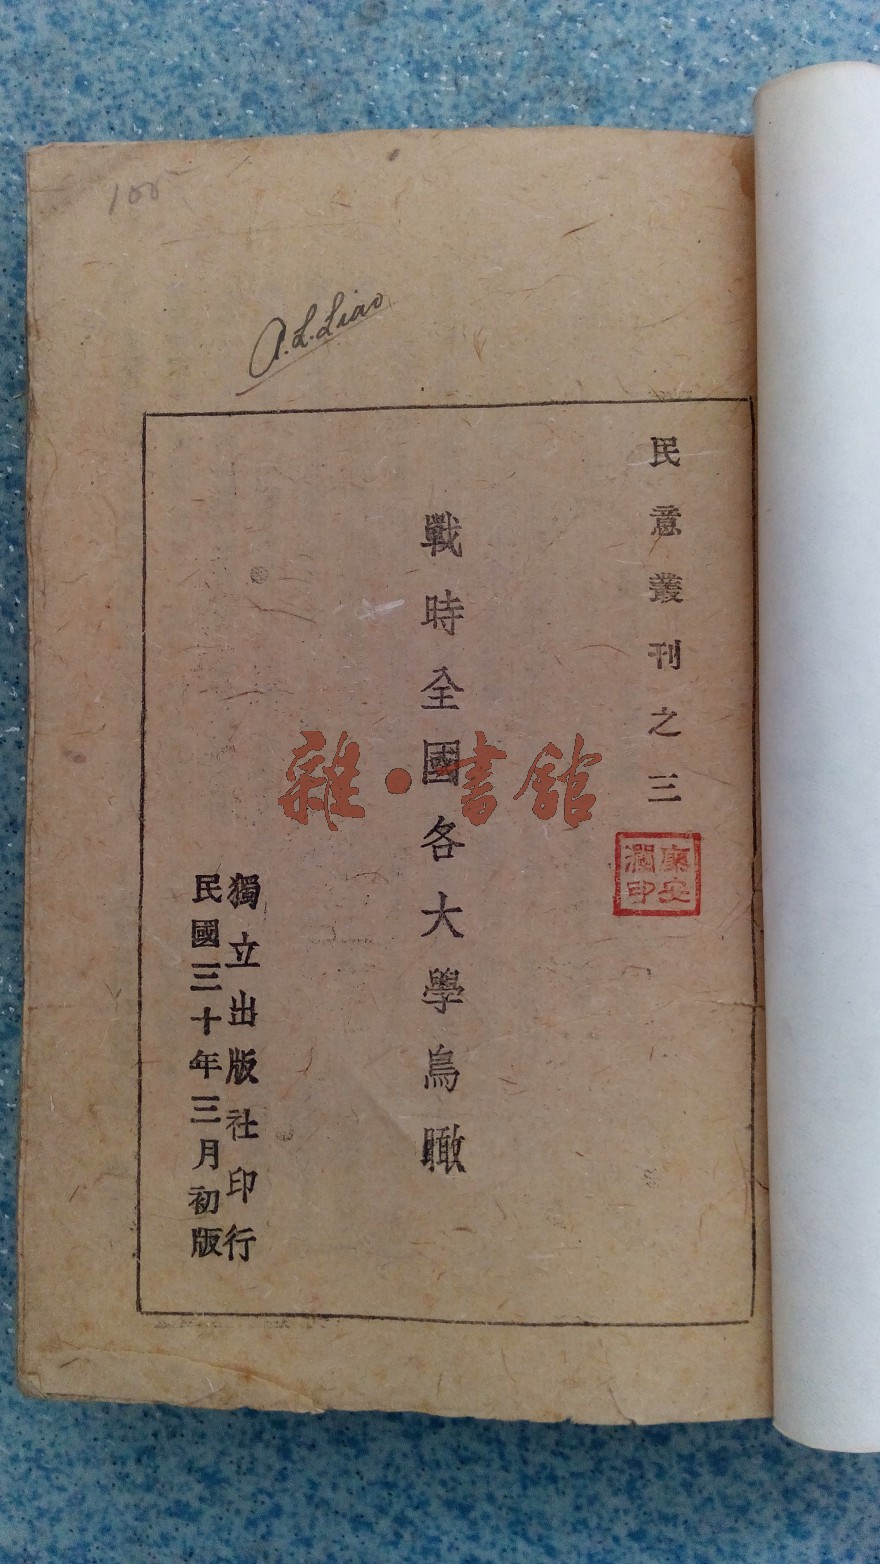 100
A.L.Liao
民意叢刊之三
廖安瀾印
戰時全國各大學鳥瞰
雜·書館
獨立出版社印行
民國三十年三月初版